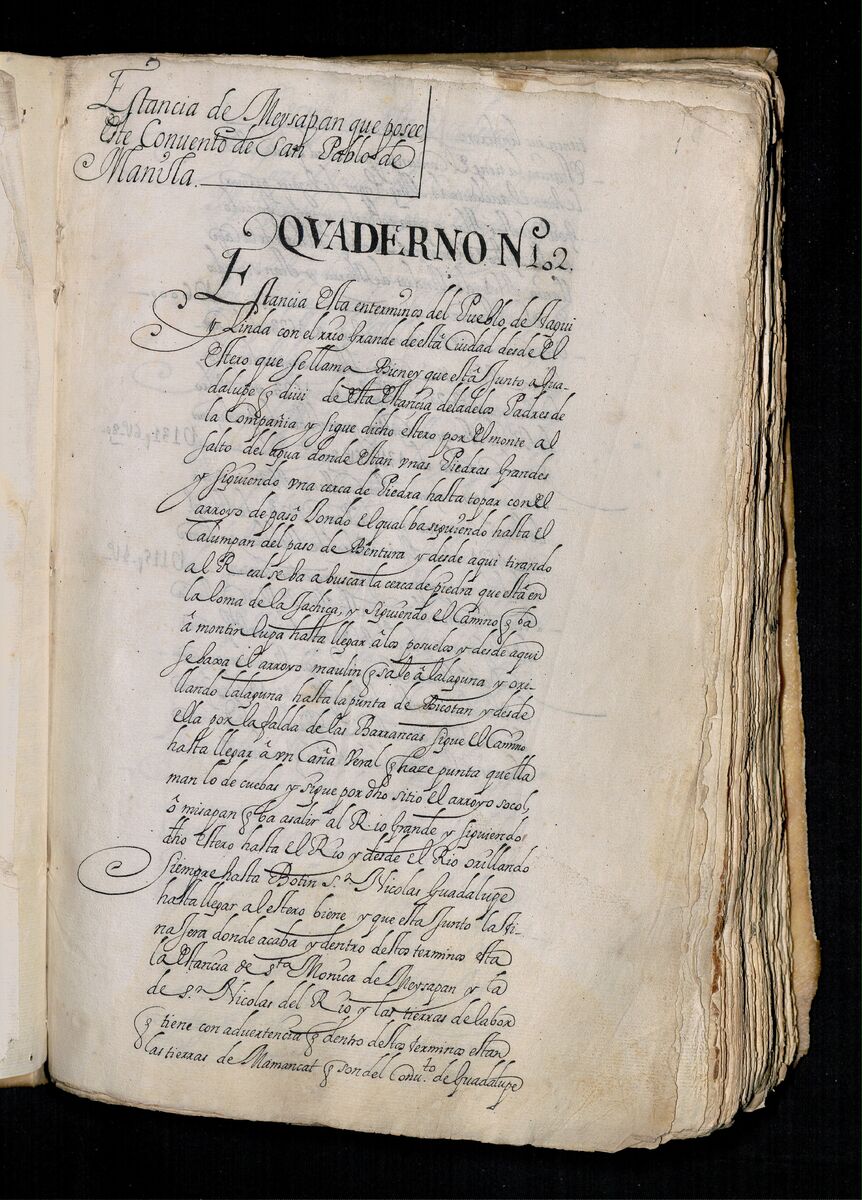 Estancia de Meysapan que posee
Este Conuento de San Pablo de
Manila.
QVADERNO Nº. 2.
Estancia Esta enterminos del Pueblo de Taqui
y Linda con el rrio Grande de esta Ciudad desde El
Estero que se llama Bieney que està Junto a Gua-
dalupe q̃ diuii de esta Estancia de la de los Padres de
la Compañia y sigue dicho estero por El monte al
salto del agua donde Estan vnas Piedras Grandes
y siguiendo vna cerca de Piedra hasta topar con el
arroyo de pasô Hondo el qual ba siguiendo hasta el
Calumpan del paso de Bentura y desde aqui tirando
al R eal se ba a buscar la cerca de piedra que està en
la loma de la Hachica, y siguiendo el Camino q̃ ba
â montinlupa hasta llegar â los posuelos y desde aqui
se baxa el arroyo maulin q̃ sale â la laguna y ori-
llando la laguna hasta la punta de Bicotan y desde
ella por la falda de las Barrancas sigue el Camino
hasta llegar â vn Caña Veral q̃ haze punta que lla
man lo de cuebas y sigue por dho sitio el arroyo socol,
ô misapan q̃ ba asalir al Rio Grande y siguiendo
dho estero hasta el Rio y desde el Rio orillando
siempre hasta Botin S.n Nicolas Guadalupe
hasta llegar al estero biene y que esta Junto la Hi-
nassera donde acaba y dentro destos terminos esta
la Estancia de sta Monica de Meysapan y la
de S.n Nicolas del Rio y las tierras de labor
q̃ tiene con aduertencia q̃ dentro destos terminos estan
las tierras de Mamancat q̃ son del Conu.to de Guadalupe